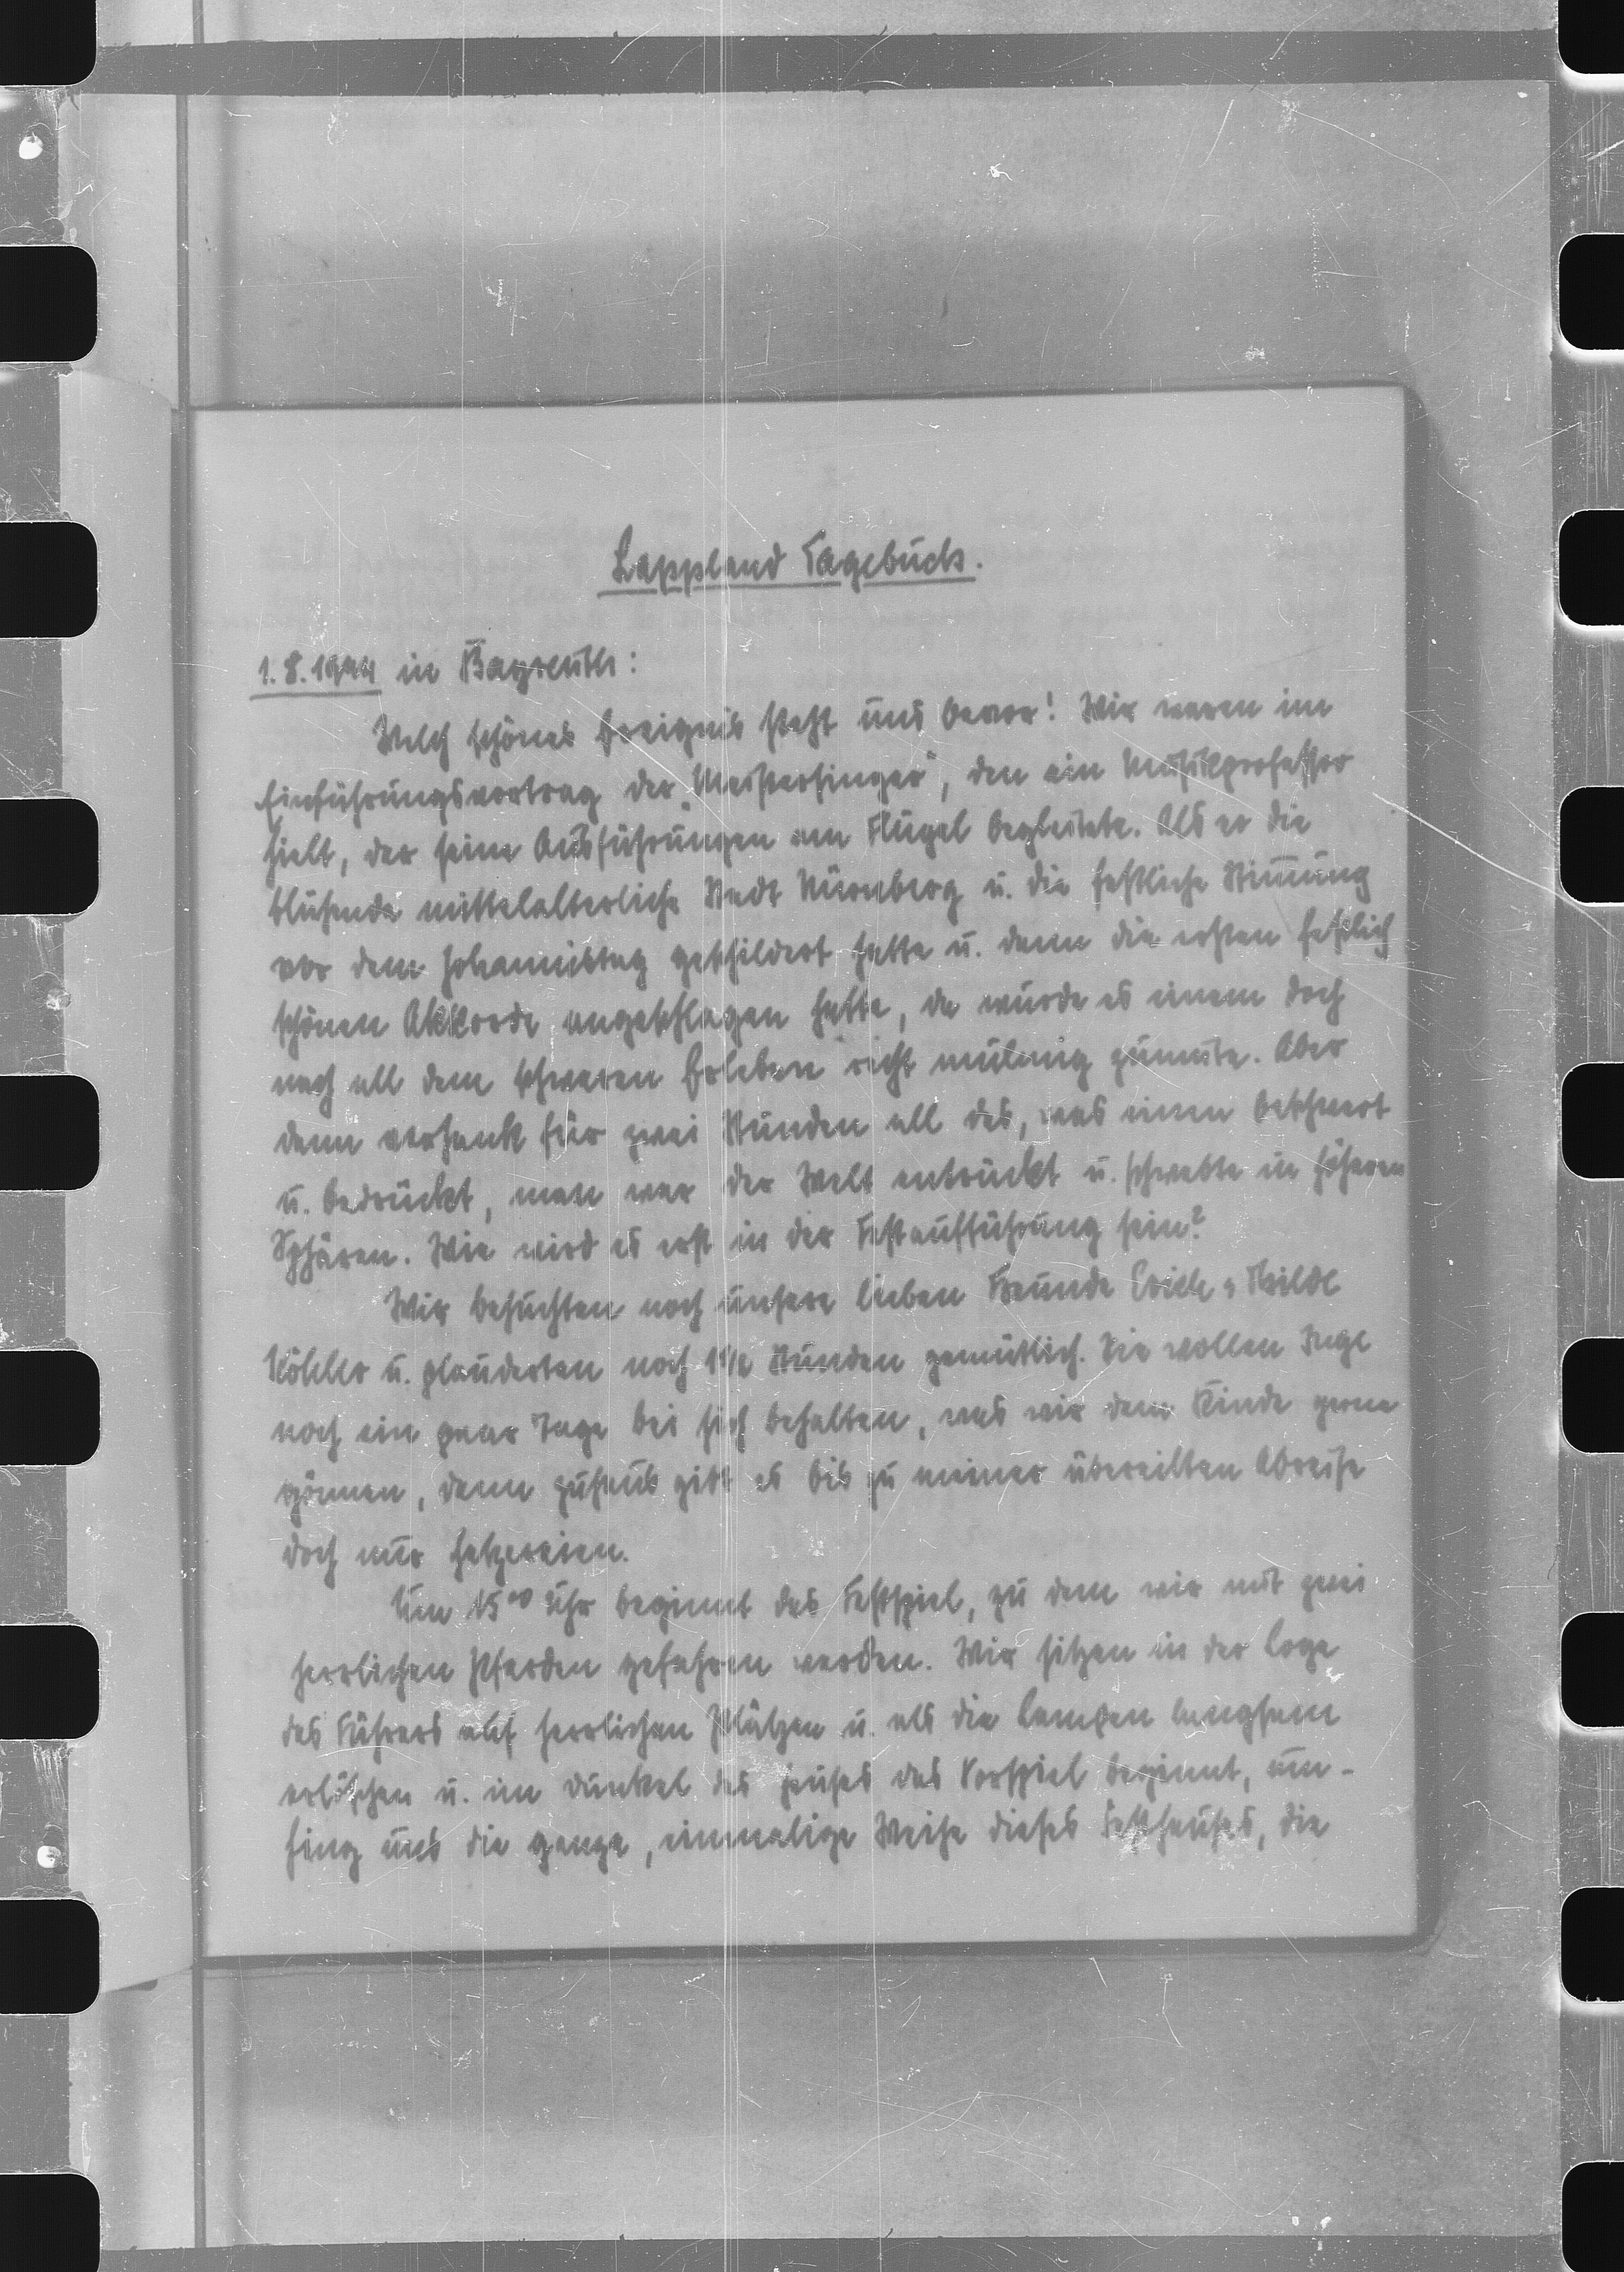 Lappland Tagebuch.
1.8.1944 in Bayreuth:
Welch schönes Ereignis steht uns bevor! Wir waren im
Einführungsvortrag der „Meistersinger", den ein Musikprofessor
hielt, der seine Ausführungen am Flügel begleitete. Als er die
blühende mittelalterliche Stadt Nürnberg u. die festliche Stimmung
vor dem Johannistag geschildert hatte u. dann die ersten festlich
schönen Akkorde angeschlagen hatte, da wurde es einem doch
nach all dem schweren Erleben recht mulmig zumute. Aber
dann versank für zwei Stunden all das, was einen beschwert
u. bedrückt, man war der Welt entrückt u. schwebte in höheren
Sphären. Wie wird es erst in der Festaufführung sein?
Wir besuchten noch unsere lieben Freunde & Thilde
Köhler u. plauderten noch 1½ Stunden gemütlich. Sie wollen Inge
noch ein paar Tage bei sich behalten, was wir dem Kinde gerne
gönnen, denn zuhaus gibt es bis zu meiner übereilten Abreise
doch nur Hetzereien.
Um 15⁰⁰ Uhr beginnt das Festspiel, zu dem wir mit zwei
herrlichen Pferden gefahren werden. Wir sitzen in der Loge
des Führers auf herrlichen Plätzen u. als die Lampen langsam
erlöschen u. im Dunkel des Hauses das Vorspiel beginnt, um-
fing uns die ganze, einmalige Weihe dieses Festhauses, die